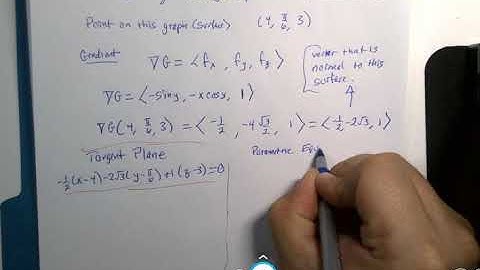 Point on this graph (surface) (4, π/6, 3)
Gradient ∇G = ⟨fx, fy, fz⟩
vector that is
normal to this
surface.
∇G = ⟨-sin y, -x cos y, 1⟩
∇G(4, π/6, 3) = ⟨-1/2, -4 √3/2, 1⟩ = ⟨-1/2 - 2√3, 1⟩
Tangent Plane
-1/2(x-4)-2√3(y-π/6)+1(z-3)=0
Parametric Eq